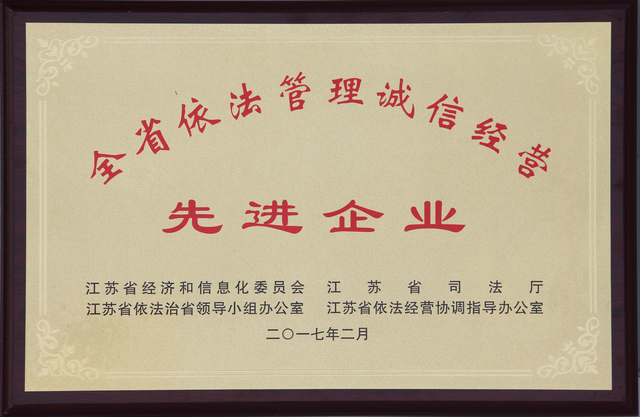 全省依法管理诚信经营
先进企业
江苏省经济和信息化委员会 江苏省司法厅
江苏省依法治省领导小组办公室 江苏省依法经营协调指导办公室
二〇一七年二月